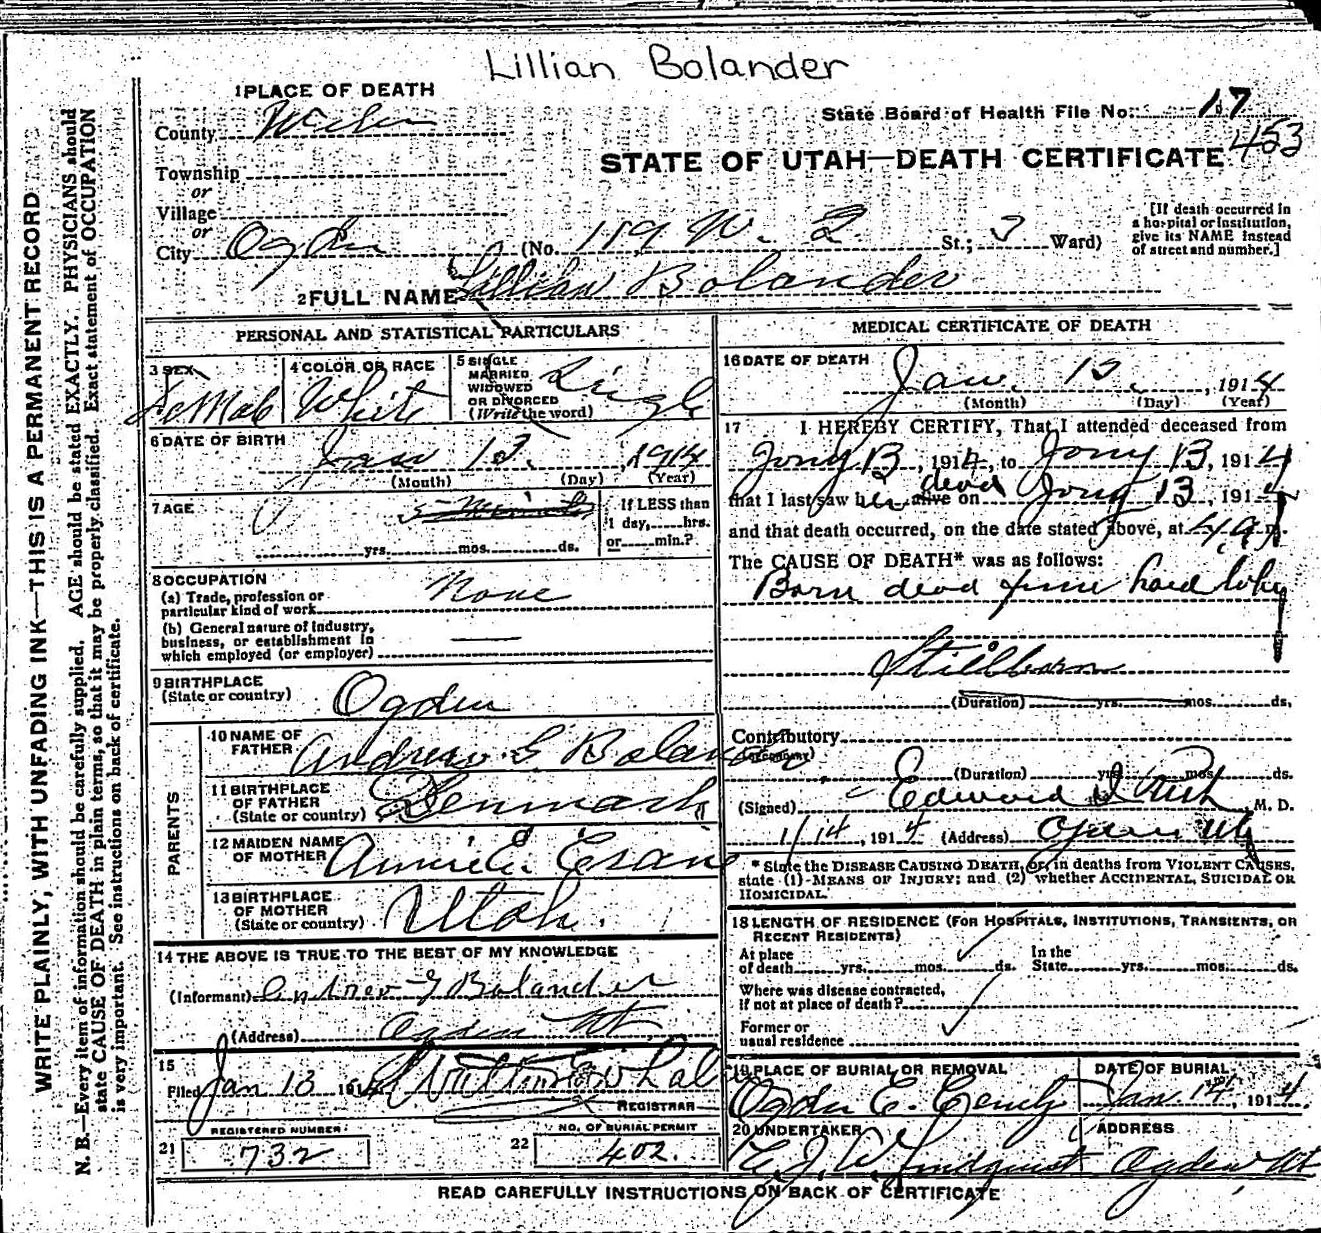 Lillian Bolander
1 PLACE OF DEATH
State Board of Health File No. 17
453
County Weber
STATE OF UTAH—DEATH CERTIFICATE
Township
or
Village
or
City Ogden (No. 119 W. 2 St.; 3 Ward)
[If death occurred in
a hospital or institution,
give its NAME instead
of street and number.]
2 FULL NAME Lillian Bolander
WRITE PLAINLY, WITH UNFADING INK—THIS IS A PERMANENT RECORD
N. B.—Every item of information should be carefully supplied. AGE should be stated EXACTLY. PHYSICIANS should
state CAUSE OF DEATH in plain terms, so that it may be properly classified. Exact statement of OCCUPATION
is very important. See instructions on back of certificate.
PERSONAL AND STATISTICAL PARTICULARS
3 SEX
Female
4 COLOR OR RACE
White
5 SINGLE
MARRIED
WIDOWED
OR DIVORCED
(Write the word)
Single
6 DATE OF BIRTH
Jan 13, 1914
(Month) (Day) (Year)
7 AGE
0
5 Minutes
yrs. mos. ds.
If LESS than
1 day, hrs.
or min.?
8 OCCUPATION
(a) Trade, profession or
particular kind of work None
(b) General nature of industry,
business, or establishment in
which employed (or employer)
9 BIRTHPLACE
(State or country) Ogden
PARENTS
10 NAME OF
FATHER Andrew G Bolander
11 BIRTHPLACE
OF FATHER
(State or country) Denmark
12 MAIDEN NAME
OF MOTHER Annie E. Evans
13 BIRTHPLACE
OF MOTHER
(State or country) Utah.
14 THE ABOVE IS TRUE TO THE BEST OF MY KNOWLEDGE
(Informant) Andrew G Bolander
(Address) Ogden Ut
15
Filed Jan 13 191
REGISTRAR
REGISTERED NUMBER
21 732
NO. OF BURIAL PERMIT
22 402.
MEDICAL CERTIFICATE OF DEATH
16 DATE OF DEATH
Jan. 13, 1914
(Month) (Day) (Year)
17 I HEREBY CERTIFY, That I attended deceased from
Jany 13, 1914, to Jany 13, 1914
that I last saw her alive on dead Jany 13, 1914
and that death occurred, on the date stated above, at 4 a m.
The CAUSE OF DEATH* was as follows:
Born dead from hard
Stillborn
(Duration) yrs. mos. ds.
Contributory
(SECONDARY)
(Duration) yrs. mos. ds.
(Signed) Edward I Rich, M. D.
1/14, 1914 (Address) Ogden Ut
* State the DISEASE CAUSING DEATH, or, in deaths from VIOLENT CAUSES,
state (1) MEANS OF INJURY; and (2) whether ACCIDENTAL, SUICIDAL OR
HOMICIDAL.
18 LENGTH OF RESIDENCE (FOR HOSPITALS, INSTITUTIONS, TRANSIENTS, OR
RECENT RESIDENTS)
At place
of death yrs. mos. ds.
In the
State yrs. mos. ds.
Where was disease contracted,
if not at place of death?
Former or
usual residence
19 PLACE OF BURIAL OR REMOVAL
Ogden C. Cemety
DATE OF BURIAL
Jan. 14, 1914.
20 UNDERTAKER
Lindquist
ADDRESS
Ogden, Ut
READ CAREFULLY INSTRUCTIONS ON BACK OF CERTIFICATE